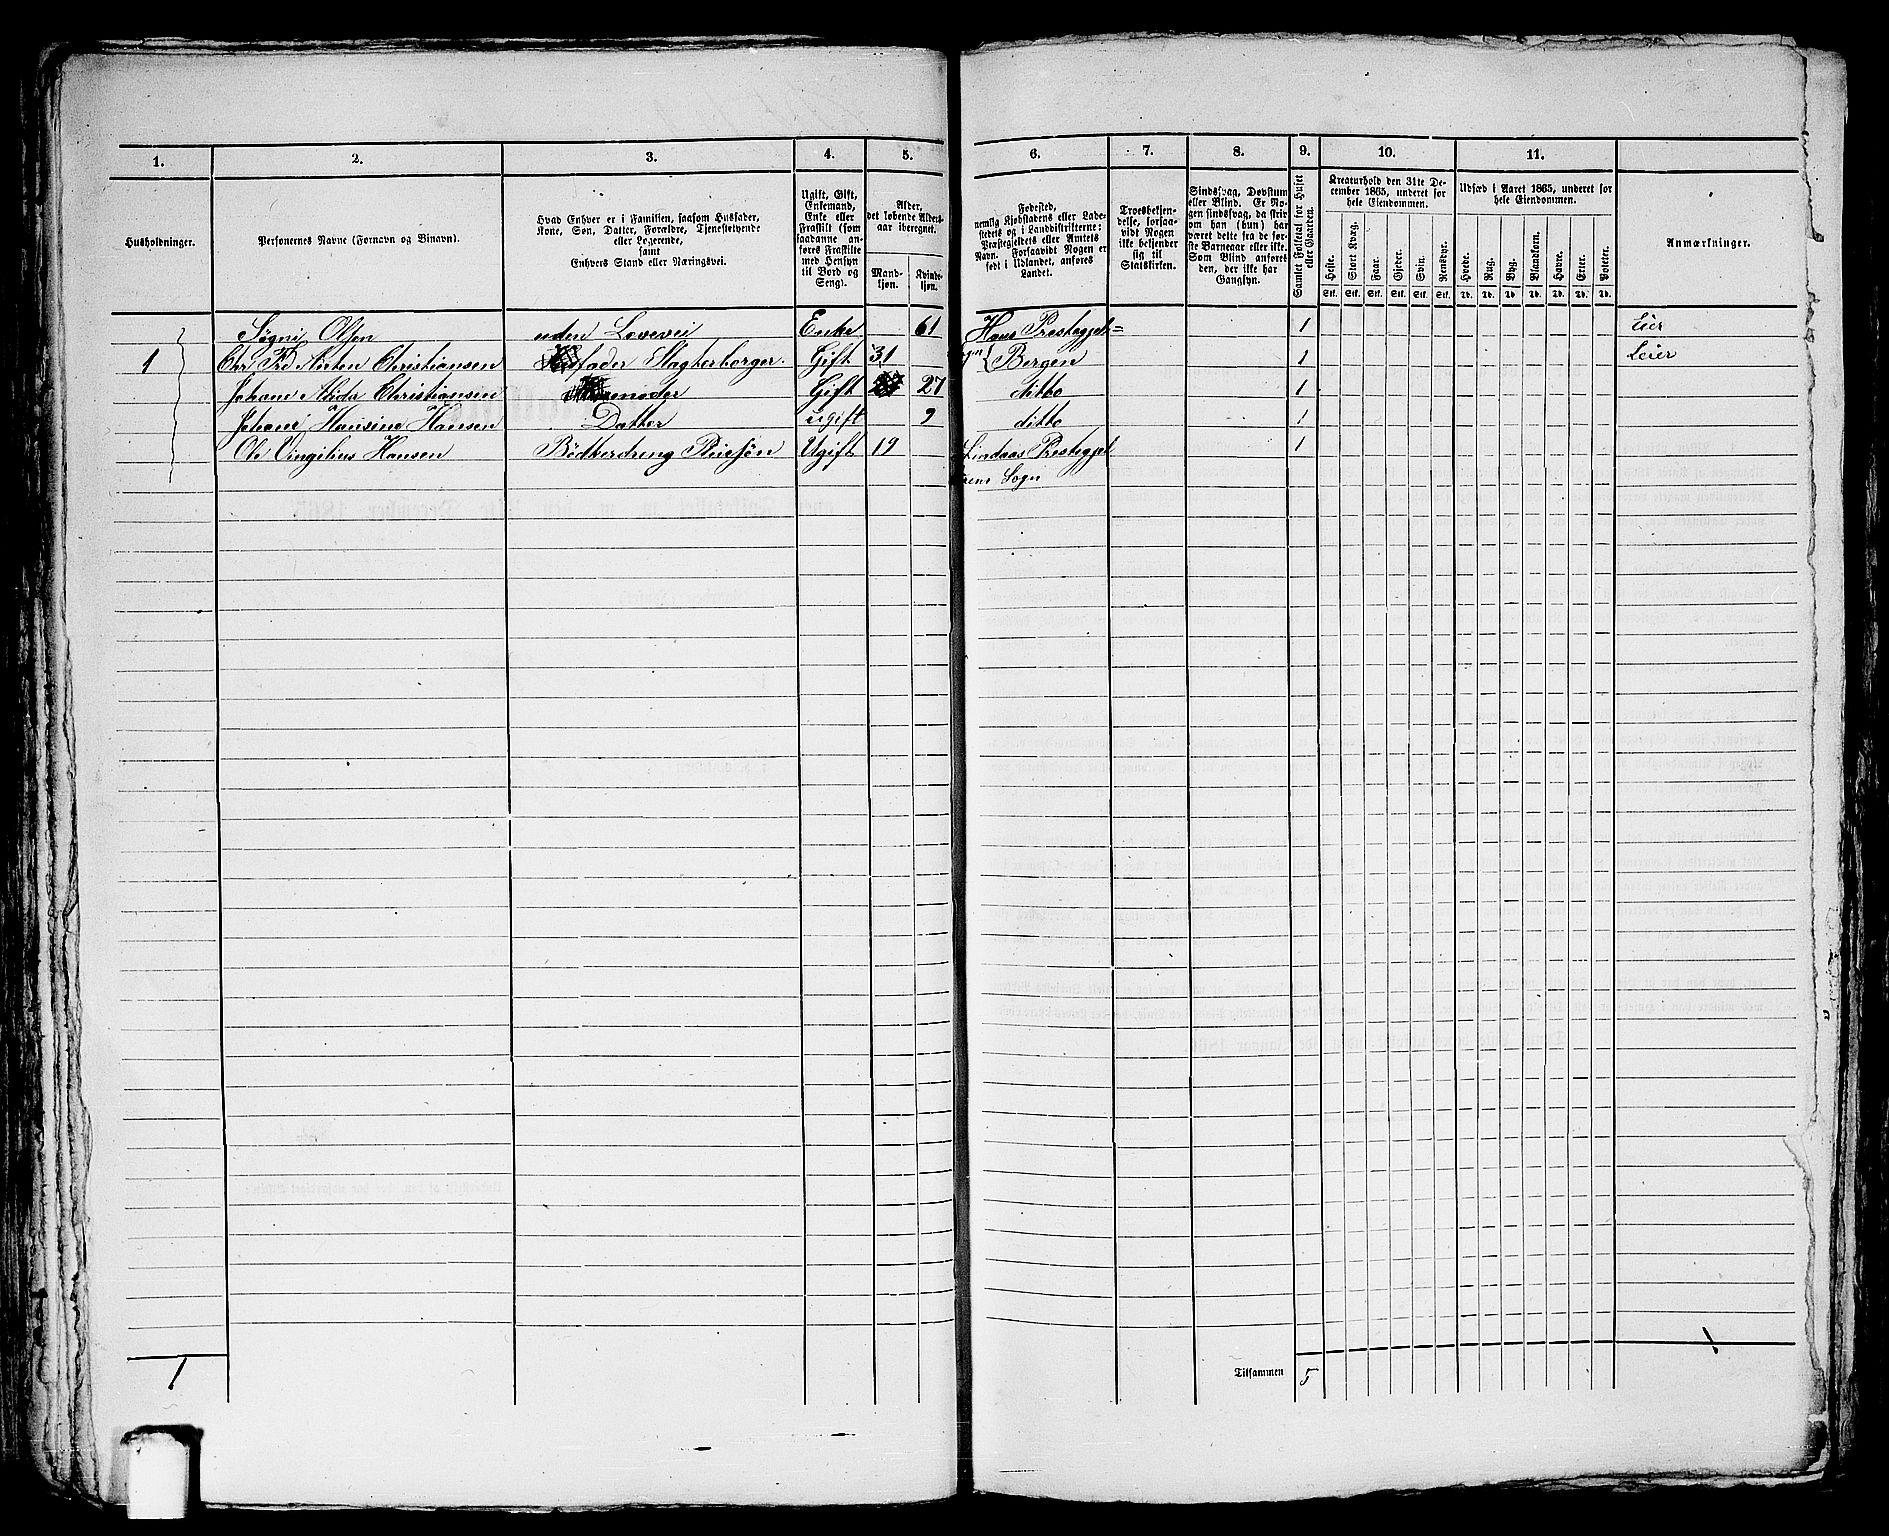 1. 2. 3. 4. 5. 6. 7. 8. 9. 10. 11.
Husholdninger.
Personernes Navne (Fornavn og Binavn).
Hvad Enhver er i Familien, saasom Husfader,
Kone, Søn, Datter, Forældre, Tjenestetyende
eller Logerende,
samt
Enhvers Stand eller Næringsvei.
Ugift, Gift,
Enkemand,
Enke eller
Fraskilt (som
saadanne an-
føres Fraskilte
med Hensyn
til Bord og
Seng).
Alder,
det løbende Alders-
aar iberegnet.
Mand-
kjøn.
Kvinde-
kjøn.
Fødested,
nemlig Kjøbstadens eller Lade-
stedets og i Landdistrikterne:
Præstegjeldets eller Amtets
Navn. Forsaavidt Nogen er
født i Udlandet, anføres
Landet.
Troesbekjen-
delse, forsaa-
vidt Nogen
ikke bekjender
sig til
Statskirken.
Sindssvag, Døvstum
eller Blind. Er No-
gen sindssvag, da skriv
om han (hun) har
været dette fra de før-
ste Barneaar eller ikke.
Som Blind anføres
den, der ikke har
Gangsyn.
Samlet Folketal for Huset
eller Gaarden.
Kreaturhold den 31te De-
cember 1865, underet for
hele Eiendommen.
Heste. Stort Kvæg. Faar. Gjeder. Svin. Rensdyr.
Stk. Stk. Stk. Stk. Stk. Stk.
Udsæd i Aaret 1865, underet for
hele Eiendommen.
Hvede. Rug. Byg. Blandkorn. Havre. Erter. Poteter.
Td. Td. Td. Td. Td. Td. Td.
Anmærkninger.
Søgni Olsen uden Levevei Enke 61 Hans Prestegjel= 1 Eier
1 Chr. Fred Anton Christiansen fader Slagterborger. Gift 31 Bergen 1 Leier
Johane Alida Christiansen moder Gift 27 ditto 1
Johane Hansine Hansen Datter ugift 9 ditto 1
Ole Vingilius Hansen Bødkerdreng Ugift 19 Lindaas Prestegjel 1
Sogn
1 Tilsammen 5 1